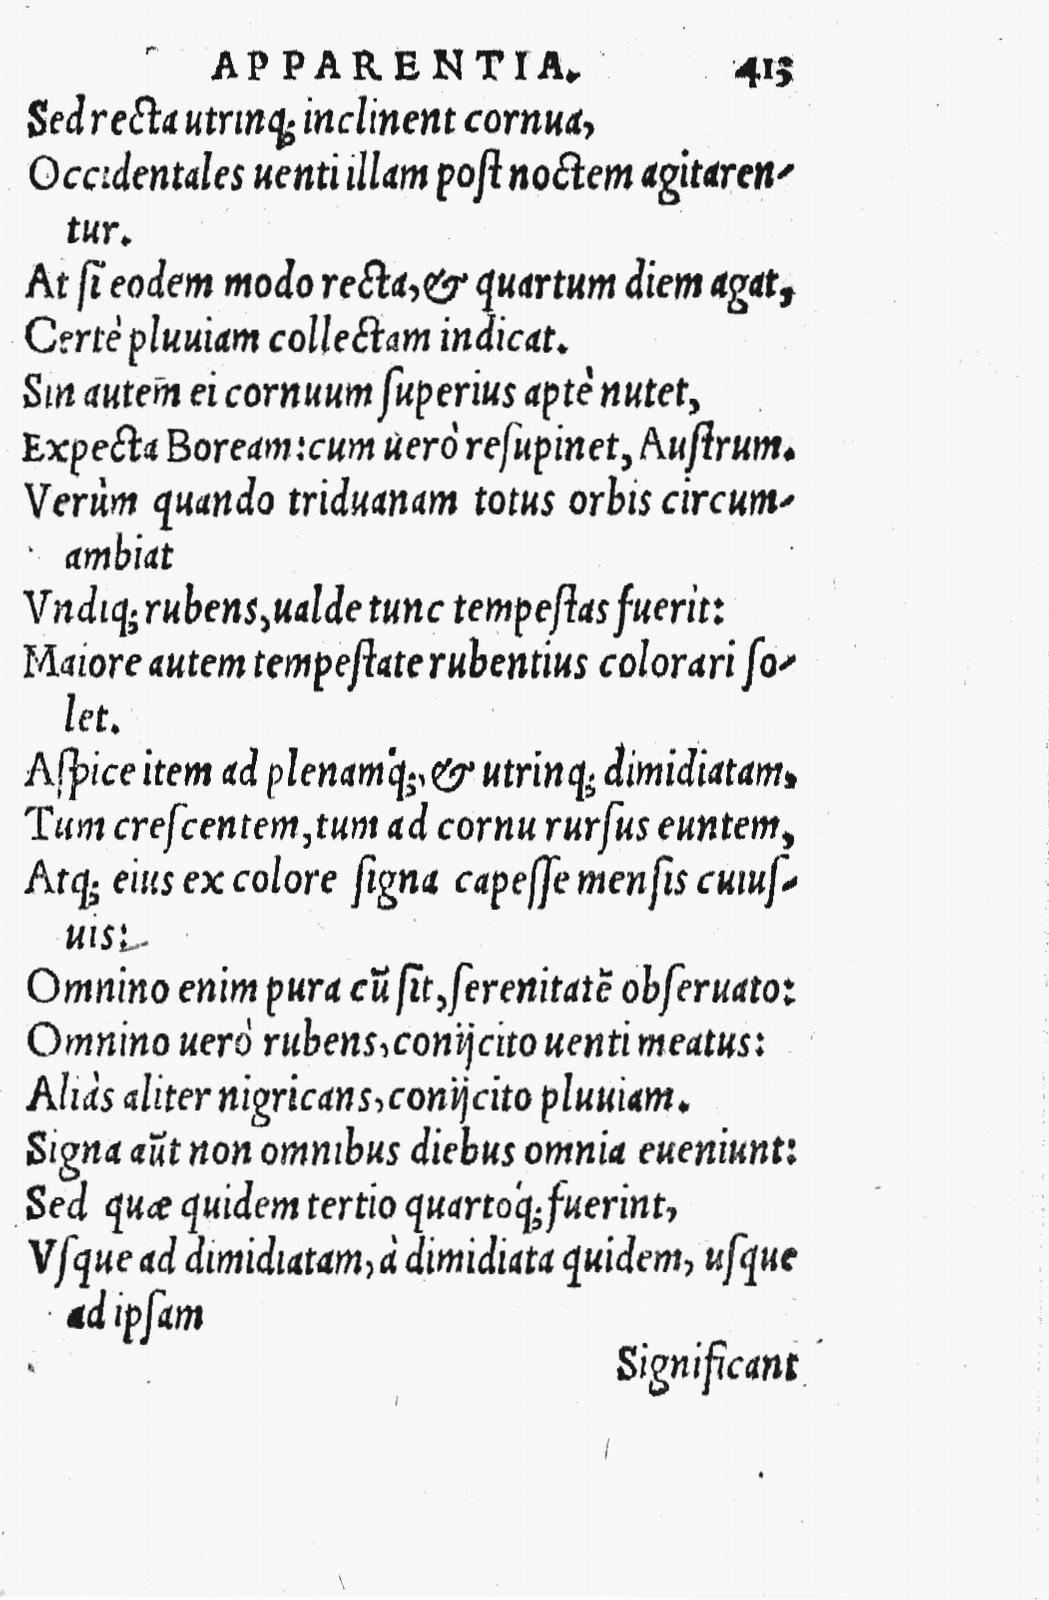 APPARENTIA. 415
Sed recta utrinq; inclinent cornua,
Occidentales uenti illam poſt noctem agitaren-
tur.
At ſi eodem modo recta, & quartum diem agat,
Certè pluuiam collectam indicat.
Sin autem̄ ei cornuum ſuperius aptè nutet,
Expecta Boream: cum uerò reſupinet, Auſtrum.
Verùm quando triduanam totus orbis circum-
ambiat
Vndiq; rubens, ualde tunc tempeſtas fuerit:
Maiore autem tempeſtate rubentius colorari ſo-
let.
Aſpice item ad plenamq́;, & utrinq; dimidiatam,
Tum creſcentem, tum ad cornu rurſus euntem,
Atq; eius ex colore ſigna capeſſe menſis cuiuſ-
uis:
Omnino enim pura cū ſit, ſerenitatē obſeruato:
Omnino uerò rubens, conijcito uenti meatus:
Aliàs aliter nigricans, conijcito pluuiam.
Signa aūt non omnibus diebus omnia eueniunt:
Sed quæ quidem tertio quartoq́; fuerint,
Vſque ad dimidiatam, à dimidiata quidem, uſque
ad ipſam
Significant